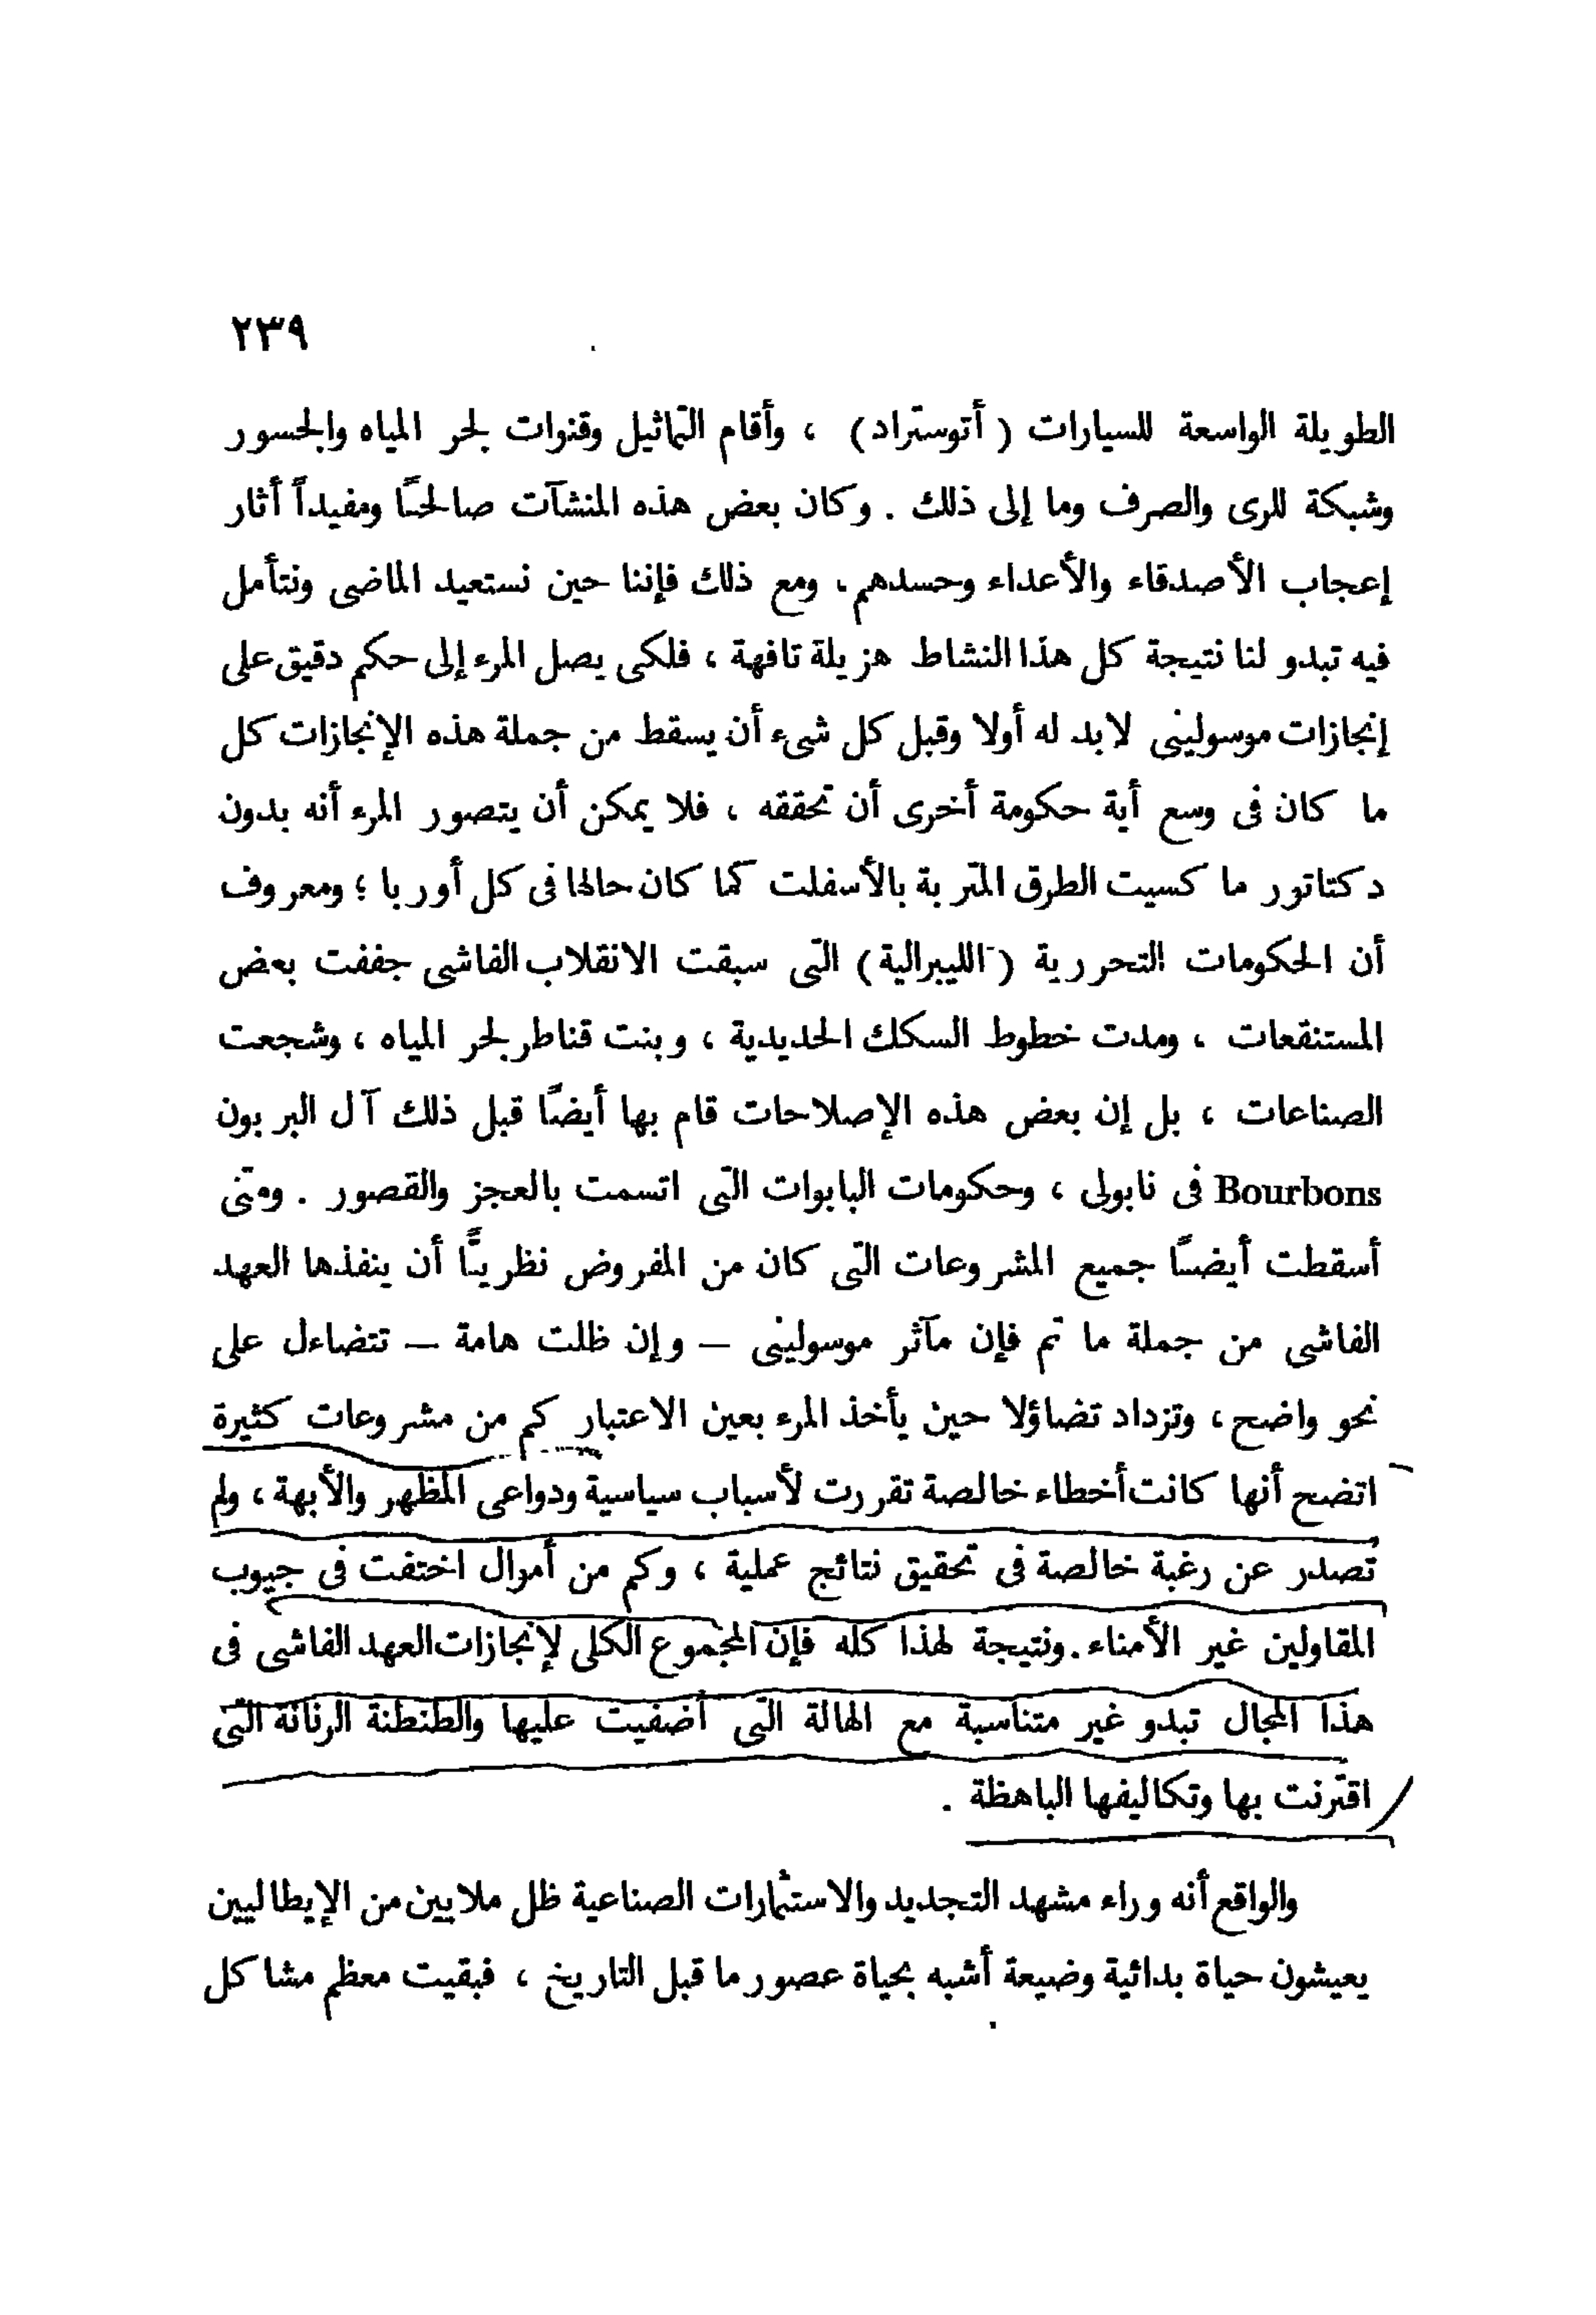 ٢٣٩
الطويلة الواسعة للسيارات ( أتوستراد ) ، وأقام التماثيل وقنوات لجر المياه والجسور
وشبكة للرى والصرف وما إلى ذلك . وكان بعض هذه المنشآت صالحًا ومفيداً أثار
إعجاب الأصدقاء والأعداء وحسدهم ، ومع ذلك فإننا حين نستعيد الماضى ونتأمل
فيه تبدو لنا نتيجة كل هذا النشاط هزيلة تافهة ، فلكى يصل المرء إلى حكم دقيق على
إنجازات موسولينى لابد له أولا وقبل كل شىء أن يسقط من جملة هذه الإنجازات كل
ما كان فى وسع أية حكومة أخرى أن تحققه ، فلا يمكن أن يتصور المرء أنه بدون
دكتاتور ما كسيت الطرق المتربة بالأسفلت كما كان حالها فى كل أوربا ؛ ومعروف
أن الحكومات التحررية ( الليبرالية ) التى سبقت الانقلاب الفاشى جففت بعض
المستنقعات ، ومدت خطوط السكك الحديدية ، وبنت قناطر لجر المياه ، وشجعت
الصناعات ، بل إن بعض هذه الإصلاحات قام بها أيضًا قبل ذلك آل البربون
Bourbons فى نابولى ، وحكومات البابوات التى اتسمت بالعجز والقصور . ومتى
أسقطت أيضًا جميع المشروعات التى كان من المفروض نظريًّا أن ينفذها العهد
الفاشى من جملة ما تم فإن مآثر موسولينى – وإن ظلت هامة – تتضاءل على
نحو واضح ، وتزداد تضاؤلا حين يأخذ المرء بعين الاعتبار كم من مشروعات كثيرة
اتضح أنها كانت أخطاء خالصة تقررت لأسباب سياسية ودواعى المظهر والأبهة ، ولم
تصدر عن رغبة خالصة فى تحقيق نتائج عملية ، وكم من أموال اختفت فى جيوب
المقاولين غير الأمناء . ونتيجة لهذا كله فإن المجموع الكلى لإنجازات العهد الفاشى فى
هذا المجال تبدو غير متناسبة مع الهالة التى أضفيت عليها والطنطنة الرنانة التى
اقترنت بها وتكاليفها الباهظة .
والواقع أنه وراء مشهد التجديد والاستثمارات الصناعية ظل ملايين من الإيطاليين
يعيشون حياة بدائية وضيعة أشبه بحياة عصور ما قبل التاريخ ، فبقيت معظم مشاكل